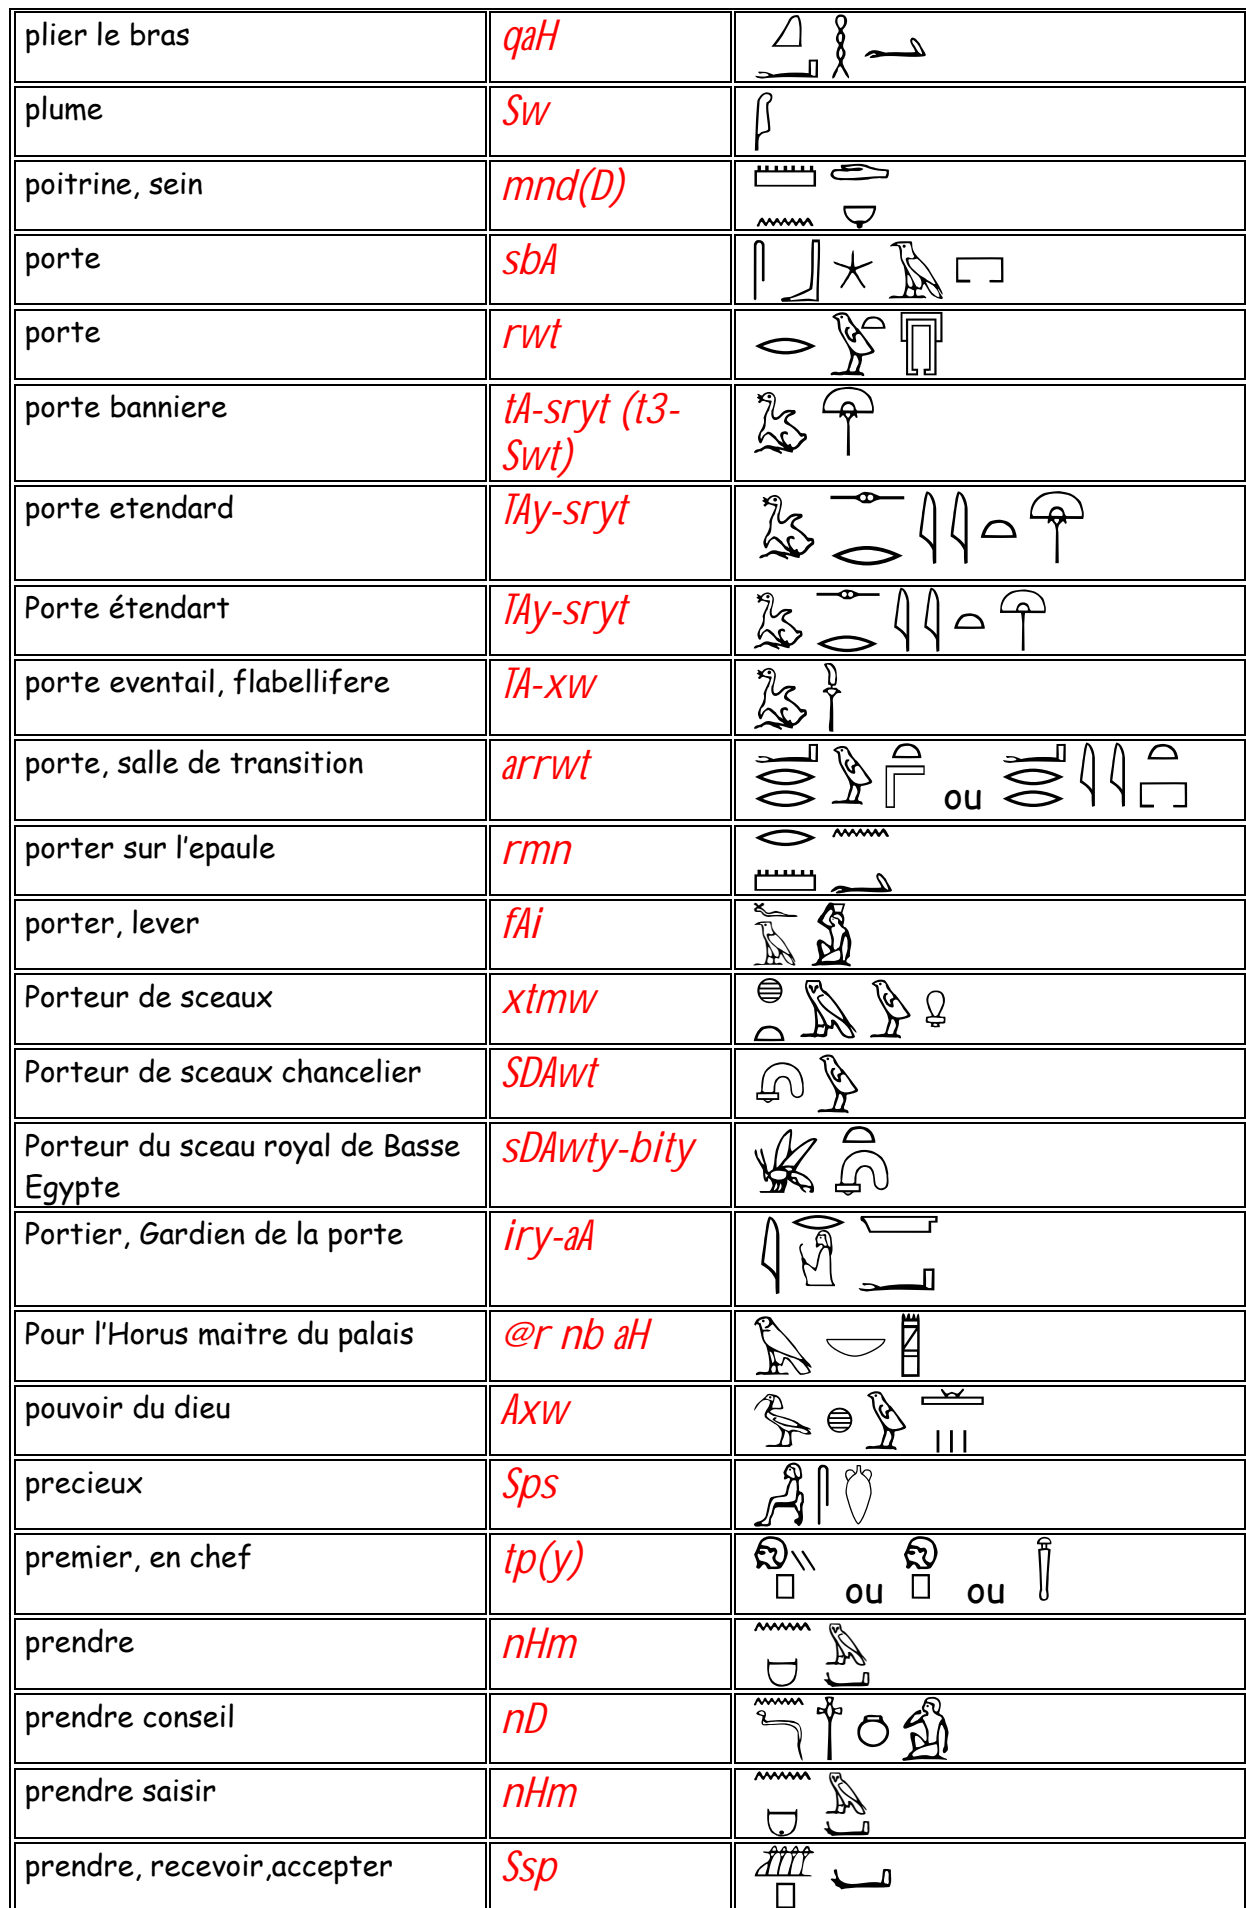 plier le bras qaH 𓈎𓂝𓎛𓂢
plume Sw 𓆄
poitrine, sein mnd(D) 𓏠𓈖𓂧𓂑
porte sbA 𓋴𓃀𓇼𓄿𓉐
porte rwt 𓂋𓅱𓏏
porte banniere tA-sryt (t3-
Swt) 𓅷𓋺
porte etendard TAy-sryt 𓅷𓊃𓂋𓇋𓇋𓏏𓋺
Porte étendart TAy-sryt 𓅷𓊃𓂋𓇋𓇋𓏏𓋺
porte eventail, flabellifere TA-xw 𓅷𓆱
porte, salle de transition arrwt 𓂝𓂋𓂋𓅱𓏏 ou 𓂝𓂋𓂋𓇋𓇋𓏏𓉐
porter sur l'epaule rmn 𓂋𓏠𓈖𓂢
porter, lever fAi 𓆑𓄿𓀋
Porteur de sceaux xtmw 𓐍𓏏𓅓𓅱𓋨
Porteur de sceaux chancelier SDAwt 𓋩𓅱
Porteur du sceau royal de Basse
Egypte sDAwty-bity 𓆤𓏏𓋩
Portier, Gardien de la porte iry-aA 𓇋𓂋𓉿𓂝
Pour l'Horus maitre du palais @r nb aH 𓅃𓎟𓉥
pouvoir du dieu Axw 𓅜𓐍𓅱𓏛𓏥
precieux Sps 𓀻𓋴
premier, en chef tp(y) 𓁶𓏭𓊪 ou 𓁶𓊪 ou
prendre nHm 𓈖𓅓𓂡
prendre conseil nD 𓈖𓆓𓐩𓏌𓀁
prendre saisir nHm 𓈖𓅓𓂡
prendre, recevoir,accepter Ssp 𓊪